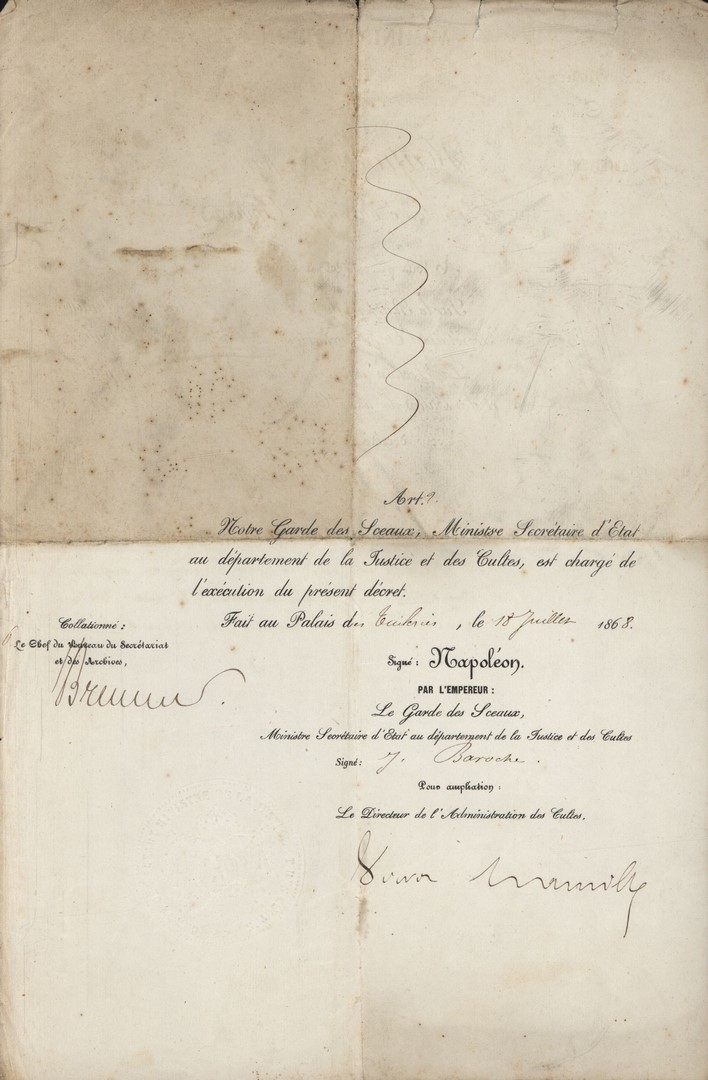 Art. 2.
Notre Garde des Sceaux, Ministre Secrétaire d'Etat
au département de la Justice et des Cultes, est chargé de
l'exécution du présent décret.
Fait au Palais des Tuileries, le 18 Juillet 1868.
Collationné :
Le Chef du Bureau du Secrétariat
et des Archives,
Signé : Napoléon.
PAR L'EMPEREUR :
Le Garde des Sceaux,
Ministre Secrétaire d'Etat au département de la Justice et des Cultes
Signé : J. Baroche.
Pour ampliation :
Le Directeur de l'Administration des Cultes,